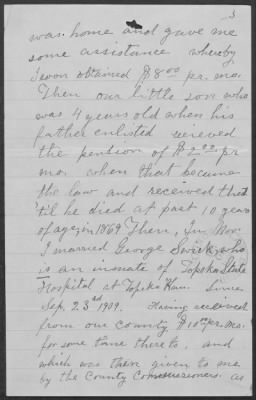 3
was home and gave me
some assistance whereby
I won obtained $8.00 pr. mo.
Then our little son who
was 4 years old when his
father enlisted received
the pention of $2.00 pr
mo. when that became
the law and received that
'til he died at past 10 years
of age, in 1869 Then, In Nov.
I married George Swick who
is an inmate of Topeka State
Hospital at Topeka Kan. Since
Sep. 23rd 1909. Having received
from our county $10.00 pr. mo.
for some time thereto, and
which was then given to me
by the County Commissioners. as